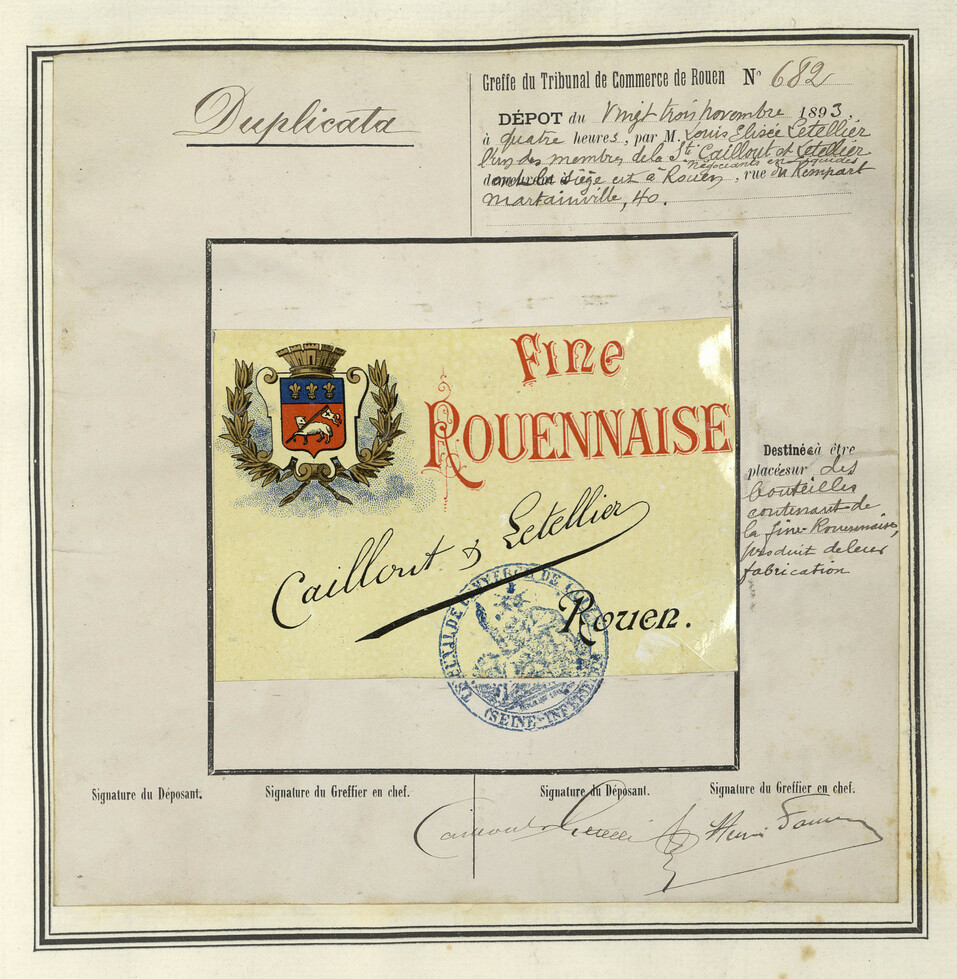 Duplicata
Greffe du Tribunal de Commerce de Rouen N° 682
DÉPOT du Vingt trois novembre 1893,
à quatre heures, par M. Louis Elisée Letellier
l'un des membres de la Sté Caillout et Letellier
négociants en liquides
dont le siège est à Rouen, rue du Rempart
Martainville, 40.
Fine
Rouennaise
Caillout & Letellier
Rouen.
TRIBUNAL DE COMMERCE DE ROUEN
(SEINE-INFÉRIEURE)
Destinée à être
placée sur des
bouteilles
contenant de
la fine-Rouennaise,
produit de leur
fabrication
Signature du Déposant.
Signature du Greffier en chef.
Signature du Déposant.
Signature du Greffier en chef.